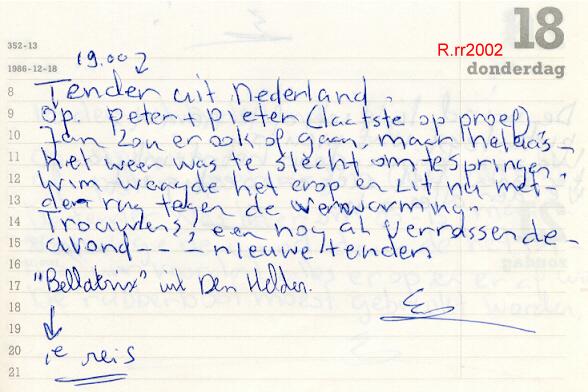 R.rr2002
18
donderdag
352-13
1986-12-18
19.00
8 Tender uit Nederland.
9 Op. Peter + Pieter (laatste op proef)
10 Jan zou er ook of gaan, mach helaas -
11 Het weer was te slecht om te springen.
12 Wim waagde het erop en zit nu met -
13 de rug tegen de verwarming.
14 Trouwens, een nog al verrassende -
15 avond - - - nieuwe tender
16
17 "Bellatrix" uit Den Helder.
18
19
20 1e reis
21